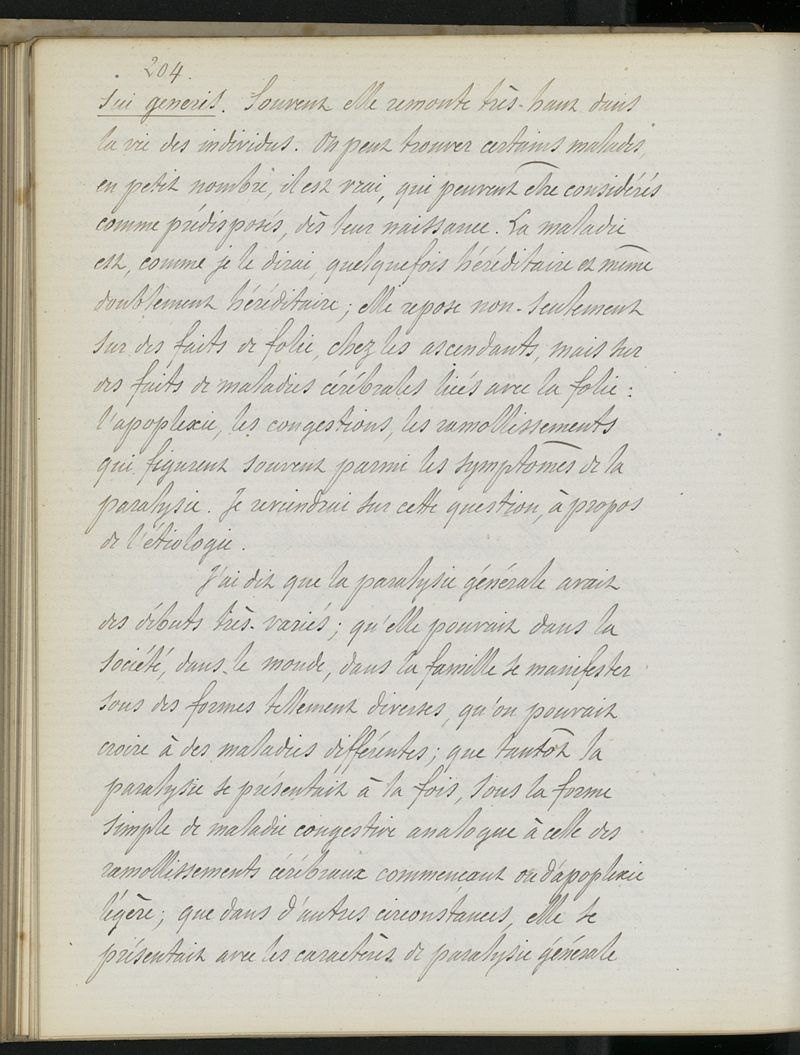 204.
sui generis. Souvent elle remonte très-haut dans
la vie des individus. On peut trouver certains malades,
en petit nombre, il est vrai, qui peuvent être considérés
comme prédisposés, dès leur naissance. La maladie
est, comme je le dirai, quelquefois héréditaire et même
doublement héréditaire ; elle repose non-seulement
sur des faits de folie, chez les ascendants, mais sur
des faits de maladies cérébrales liés avec la folie :
l'apoplexie, les congestions, les ramollissements
qui figurent souvent parmi les symptômes de la
paralysie. Je reviendrai sur cette question, à propos
de l'étiologie.
J'ai dit que la paralysie générale avait
des débuts très-variés ; qu'elle pouvait dans la
société, dans le monde, dans la famille se manifester
sous des formes tellement diverses, qu'on pouvait
croire à des maladies différentes ; que tantôt la
paralysie se présentait à la fois, sous la forme
simple de maladie congestive analogue à celle des
ramollissements cérébraux commençant ou d'apoplexie
légère ; que dans d'autres circonstances, elle se
présentait avec les caractères de paralysie générale